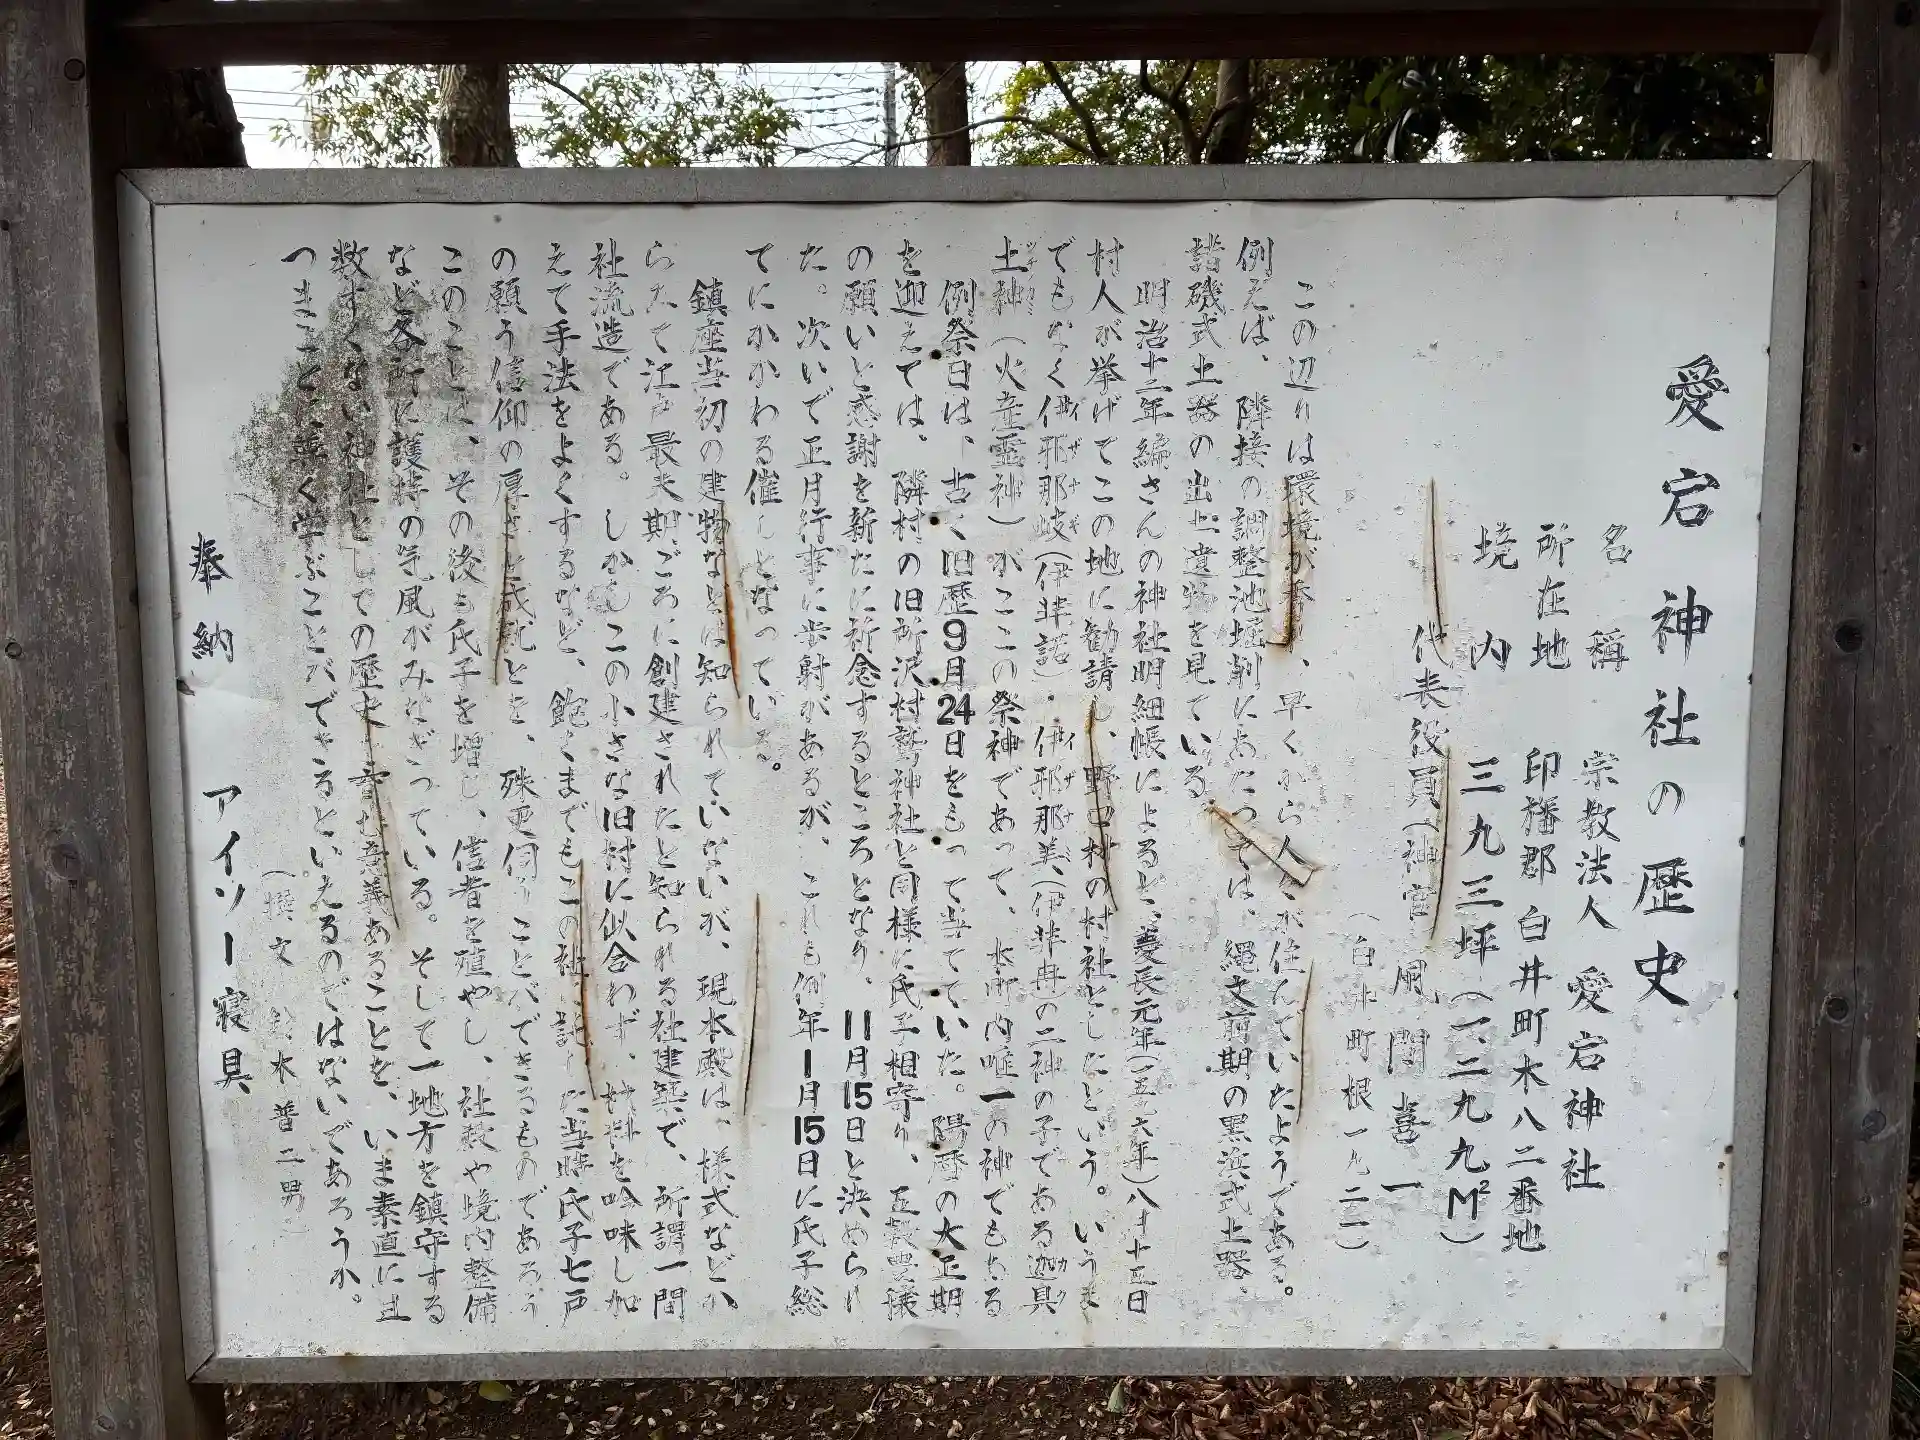 愛宕神社の歴史
名称 宗教法人 愛宕神社
所在地 印旛郡白井町木八二番地
境内 三九三坪(一、二九九M²)
代表役員(神官) 風間喜一
(白井町根一九二一)
この辺りは環境が、早くから人々が住んでいたようである。
例えば、隣接の調整池堀削にあたっては、縄文前期の黒浜式土器、
諸磯式土器の出土遺物を見ている。
明治十二年編さんの神社明細帳によると、慶長元年(一五九六年)八月十五日
村人が挙げてこの地に勧請し、野口村の村社としたという。いうま
でもなく伊耶那岐(伊弉諾)・伊耶那美(伊弉冉)の二神の子である迦具
土神(火産霊神)がここの祭神であって、本町内唯一の神でもある
例祭日は、古く旧歴9月24日をもって当てていた。陽暦の大正期
を迎えては、隣村の旧所沢村鷲神社と同様に氏子相寄り、五穀豊穣
の願いと感謝を新たに祈念するところとなり、11月15日と決められ
た。次いで正月行事に歩射があるが、これも例年1月15日に氏子総
てにかかわる催しとなっている。
鎮座当初の建物などは知られていないが、現本殿は、様式などか
らみて江戸最末期ごろに創建されたと知られる社建築で、所謂一間
社流造である。しかしこの小さな旧村に似合わず、材料を吟味し加
えて手法をよくするなど、飽くまでもこの社に託した当時氏子七戸
の願う信仰の厚さと成就とを、殊更伺うことバできるものであろう
このことは、その後も氏子を増し、信者を殖やし、社殿や境内整備
など各所に護持の気風がみなぎっている。そして一地方を鎮守する
数すくない神社としての歴史 意義あることを、いま素直に且
つまことに善く学ぶことバできるといえるのではないであろうか。
(撰文 鈴木普二男)
奉納 アイソー寝具